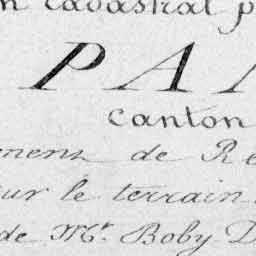 n cadastral p
PA
canton
ement de Re
sur le terrain
de Mr. Boby D